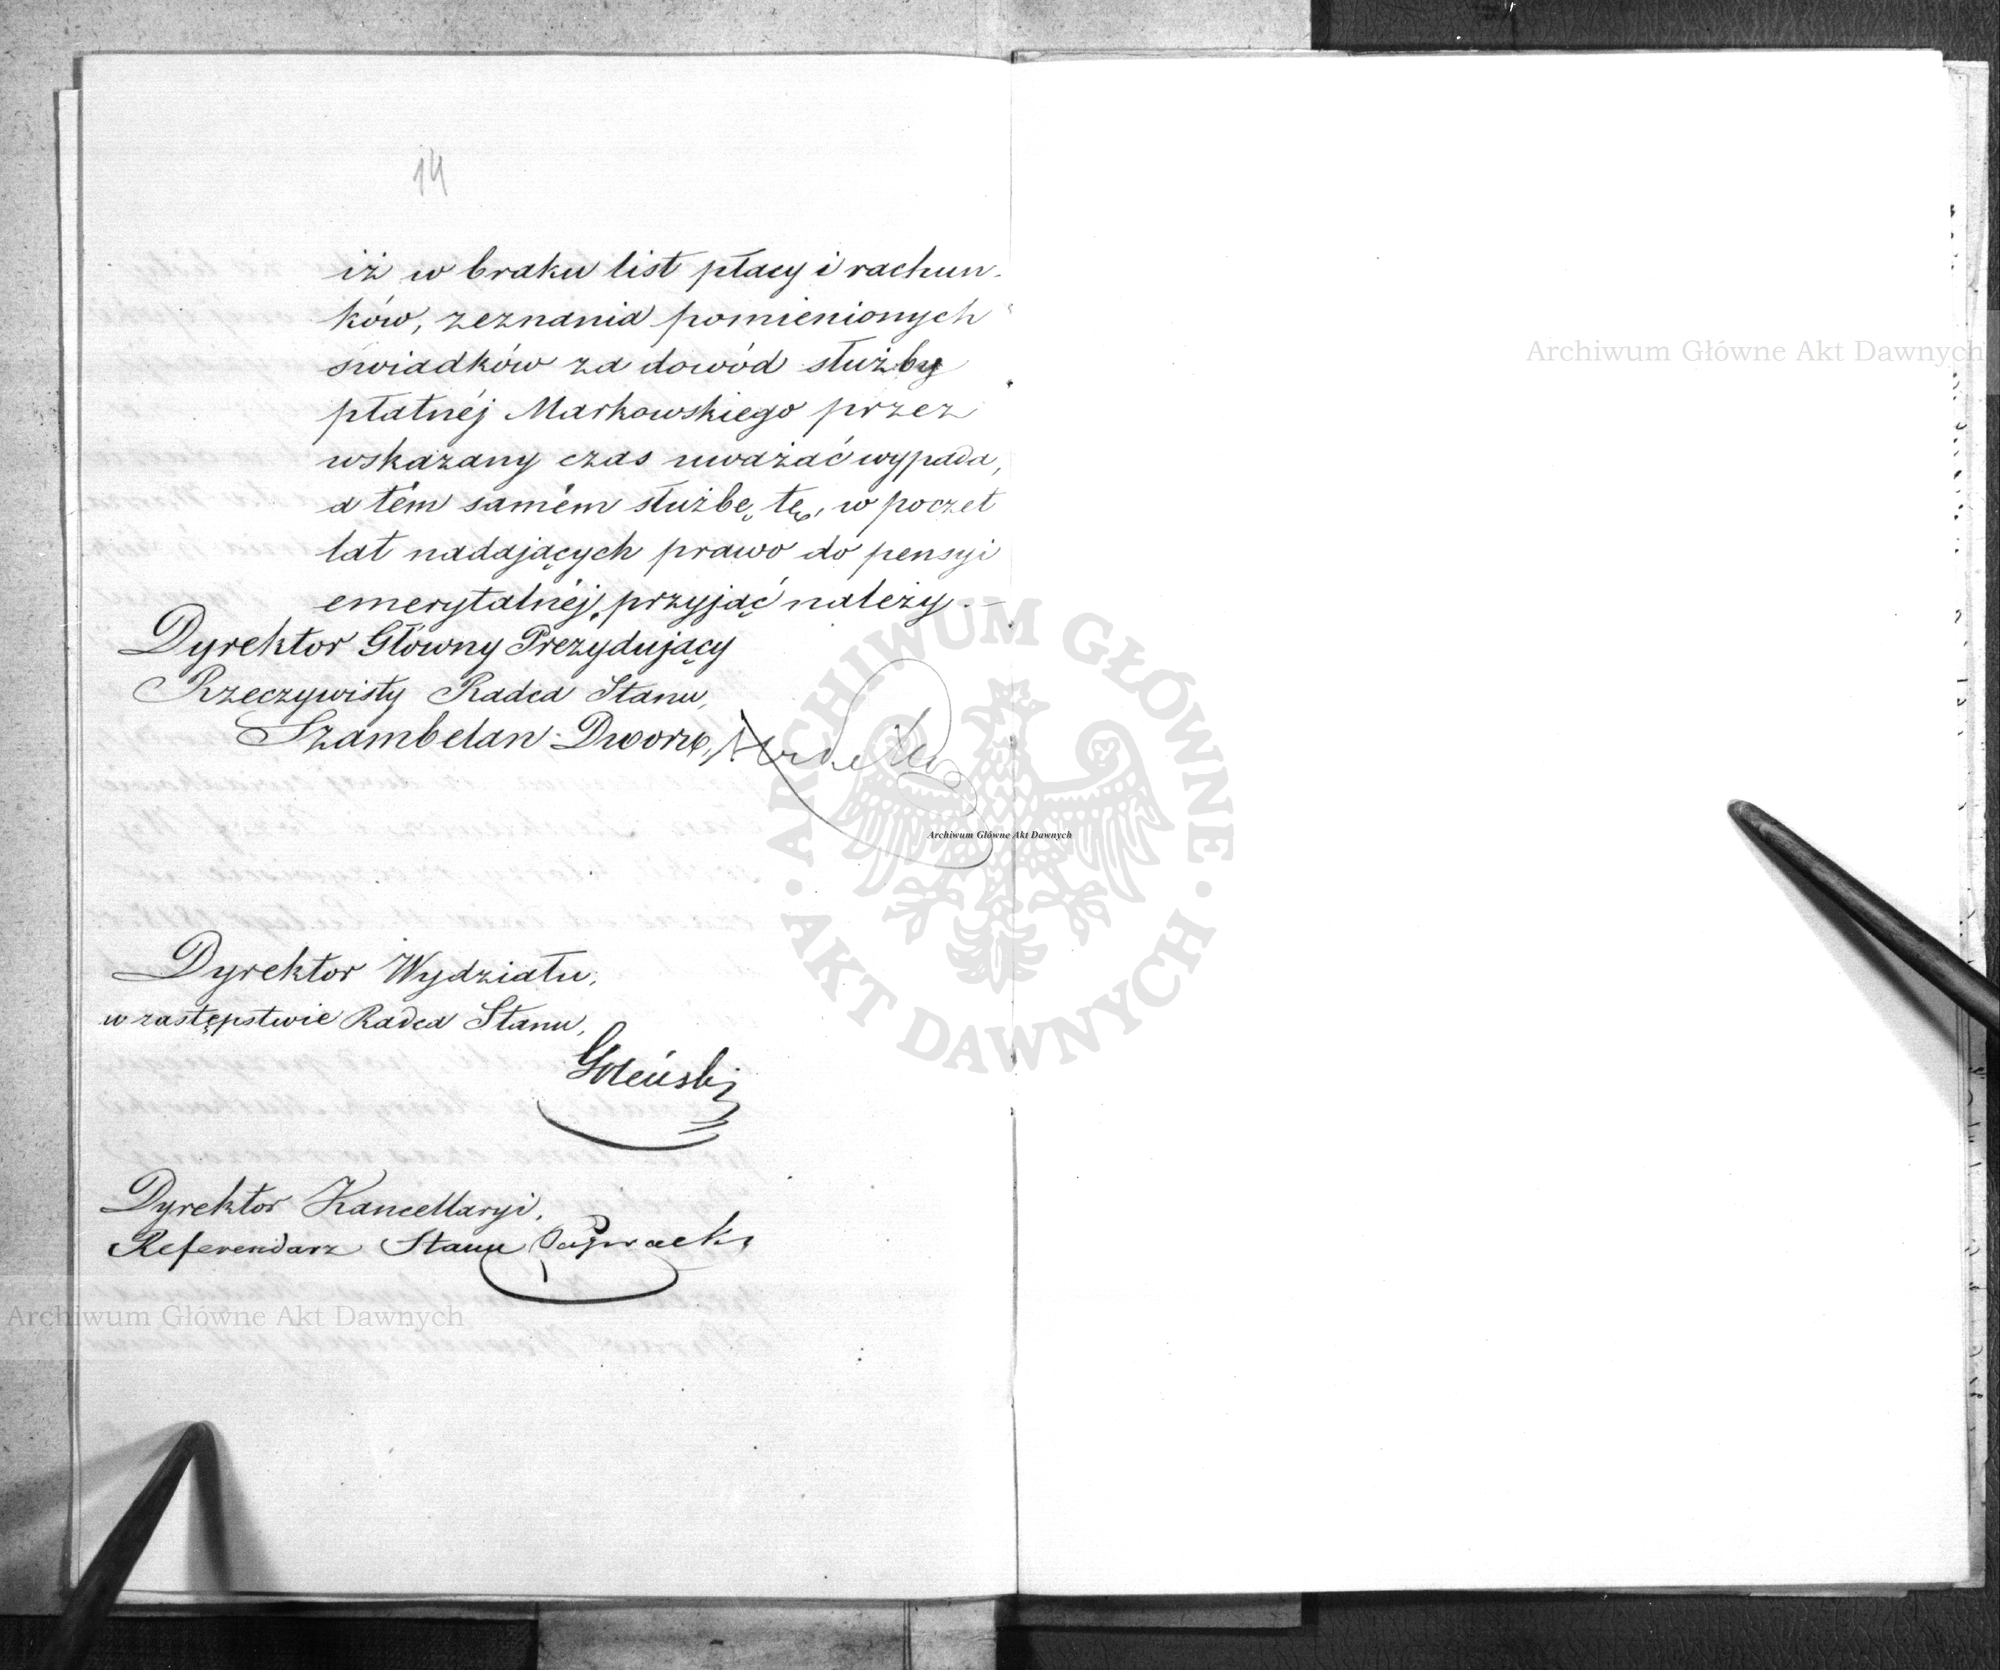 14
iż w braku list płacy i rachun-
ków, zeznania pomienionych
świadków za dowód służby
płatnéj Markowskiego przez
wskazany czas uważać wypada,
a tém samém służbę tę, w poczet
lat nadających prawo do pensyi
emerytalnéj, przyjąć należy.—
Dyrektor Główny Prezydujący
Rzeczywisty Radca Stanu,
Szambelan Dworu,
Dyrektor Wydziału,
w zastępstwie Radca Stanu,
Dyrektor Kancellaryi,
Referendarz Stanu
Archiwum Główne Akt Dawnych
Archiwum Główne Akt Dawnych
Archiwum Główne Akt Dawnych
ARCHIWUM GŁÓWNE
AKT DAWNYCH